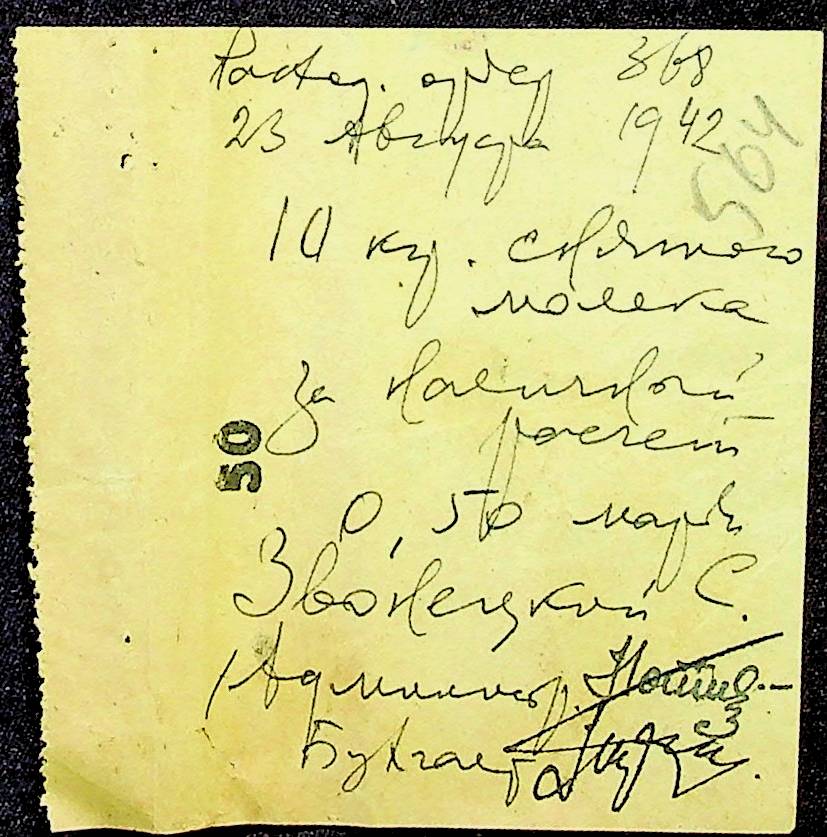 Расход. ордер 368
23 Августа 1942
564
10 кгр. снятого
молока
За наличный
расчет
50
0,50 марк
Звонецкий С.
Администр.
Бухгалт